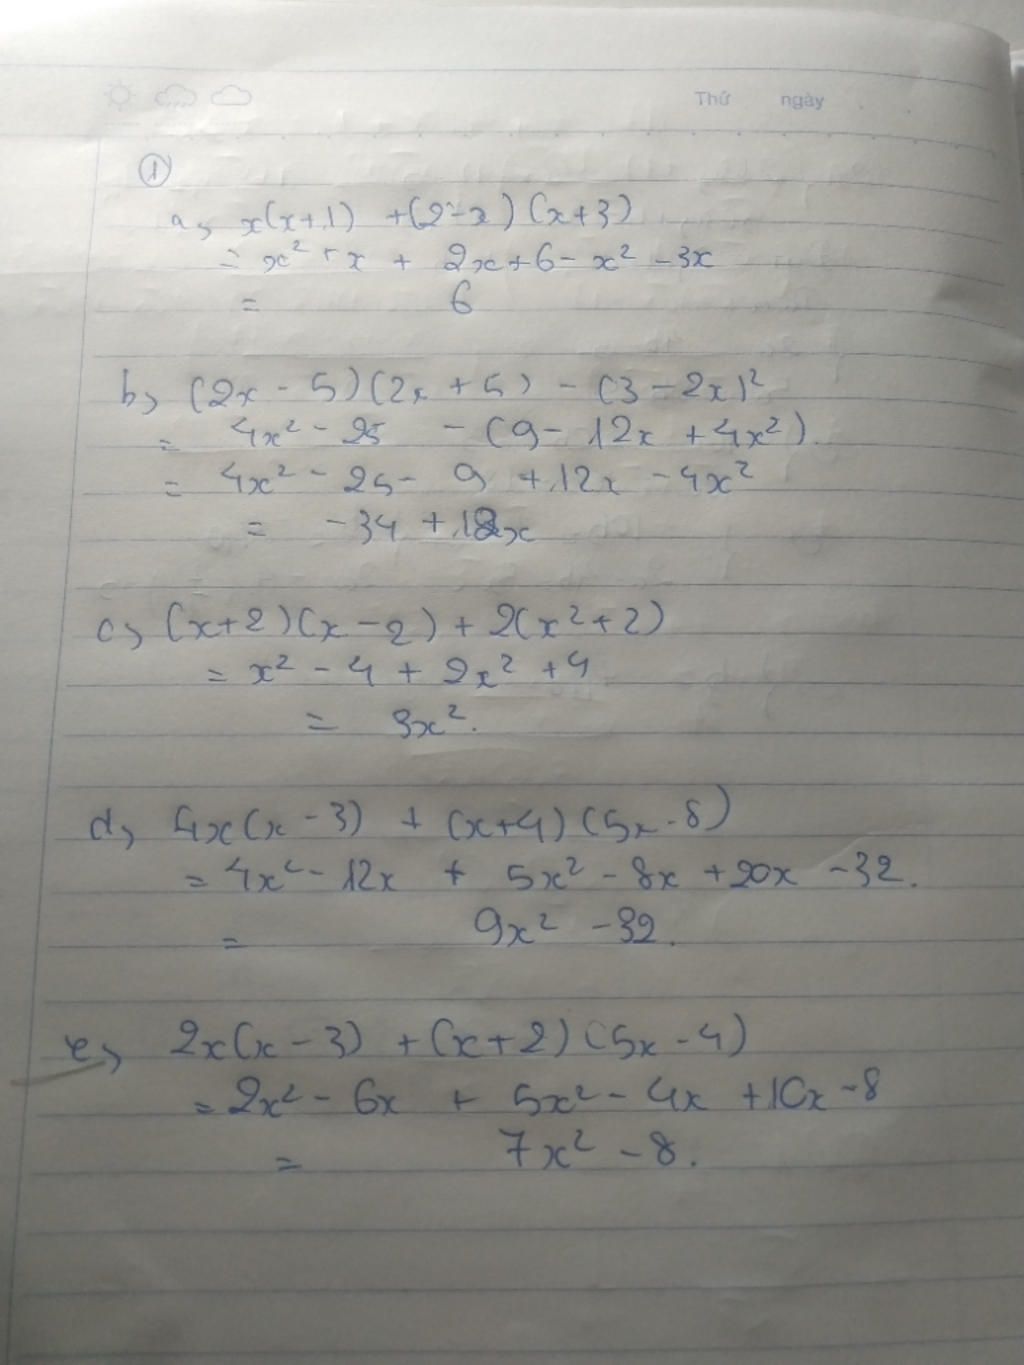 Thứ ngày
①
a, x(x+1) +(2-x)(x+3)
= x² + x + 2x+6- x² -3x
= 6
b, (2x - 5)(2x + 5) - (3 - 2x)²
= 4x² - 25 - (9- 12x + 4x²).
= 4x² - 25- 9 + 12x - 4x²
= -34 + 12x
c, (x+2)(x-2) + 2(x²+2)
= x² - 4 + 2x² +4
= 3x².
d, 4x(x-3) + (x+4)(5x-8)
= 4x² - 12x + 5x² - 8x +20x -32.
= 9x² -32.
e, 2x(x-3) +(x+2)(5x-4)
= 2x² - 6x + 5x² - 4x +10x -8
= 7x² -8.